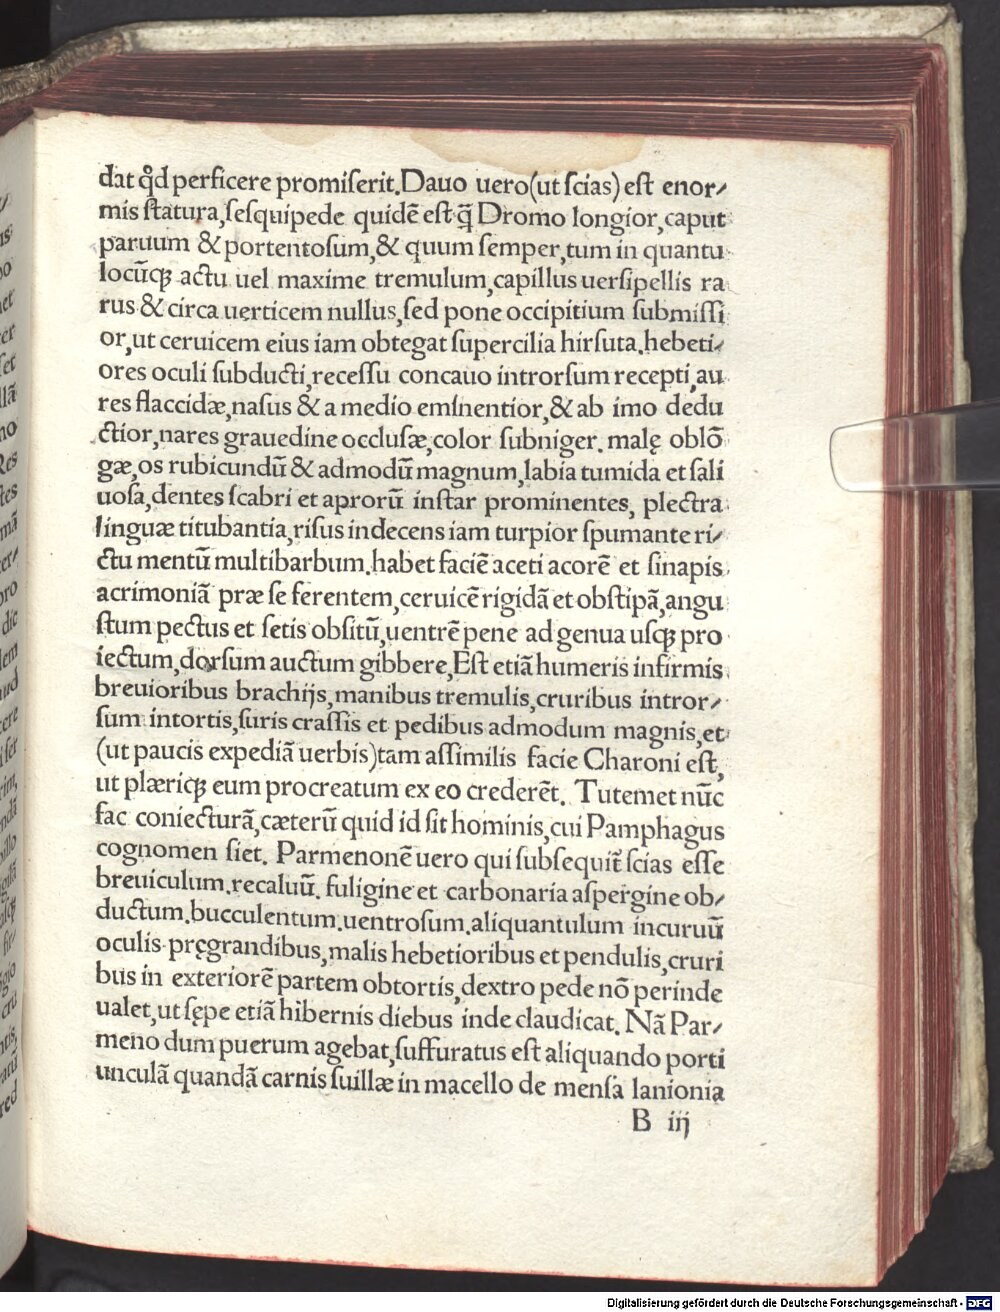 dat qd̊ perficere promiserit. Dauo uero (ut scias) est enor⸗
mis statura, sesquipede quidē est q̄ Dromo longior, caput
paruum & portentosum, & quum semper, tum in quantu
locūqꝫ actu uel maxime tremulum, capillus uersipellis ra
rus & circa uerticem nullus, sed pone occipitium submissi
or, ut ceruicem eius iam obtegat supercilia hirsuta. hebeti⸗
ores oculi subducti, recessu concauo introrsum recepti, au
res flaccidæ, nasus & a medio eminentior, & ab imo dedu
ctior, nares grauedine occlusæ, color subniger. malę oblō
gæ, os rubicundū & admodū magnum, labia tumida et sali
uosa, dentes scabri et aprorū instar prominentes, plectra
linguæ titubantia, risus indecens iam turpior spumante ri⸗
ctu mentū multibarbum. habet faciē aceti acorē et sinapis
acrimoniā præ se ferentem, ceruicē rigidā et obstipā, angu
stum pectus et setis obsitū, uentrē pene ad genua usqꝫ pro
iectum, dorsum auctum gibbere, Est etiā humeris infirmis
breuioribus brachijs, manibus tremulis, cruribus intror⸗
sum intortis, suris crassis et pedibus admodum magnis, et
(ut paucis expediā uerbis) tam assimilis facie Charoni est,
ut plæriqꝫ eum procreatum ex eo crederēt. Tutemet nūc
fac coniecturā, cæterū quid id sit hominis, cui Pamphagus
cognomen siet. Parmenonē uero qui subsequit̄ scias esse
breuiculum. recaluū. fuligine et carbonaria aspergine ob⸗
ductum. bucculentum. uentrosum. aliquantulum incuruū
oculis pręgrandibus, malis hebetioribus et pendulis, cruri
bus in exteriorē partem obtortis, dextro pede nō perinde
ualet, ut sępe etiā hibernis diebus inde claudicat. Nā Par⸗
meno dum puerum agebat, suffuratus est aliquando porti
unculā quandā carnis suillæ in macello de mensa lanionia
B iij
Digitalisierung gefördert durch die Deutsche Forschungsgemeinschaft - DFG